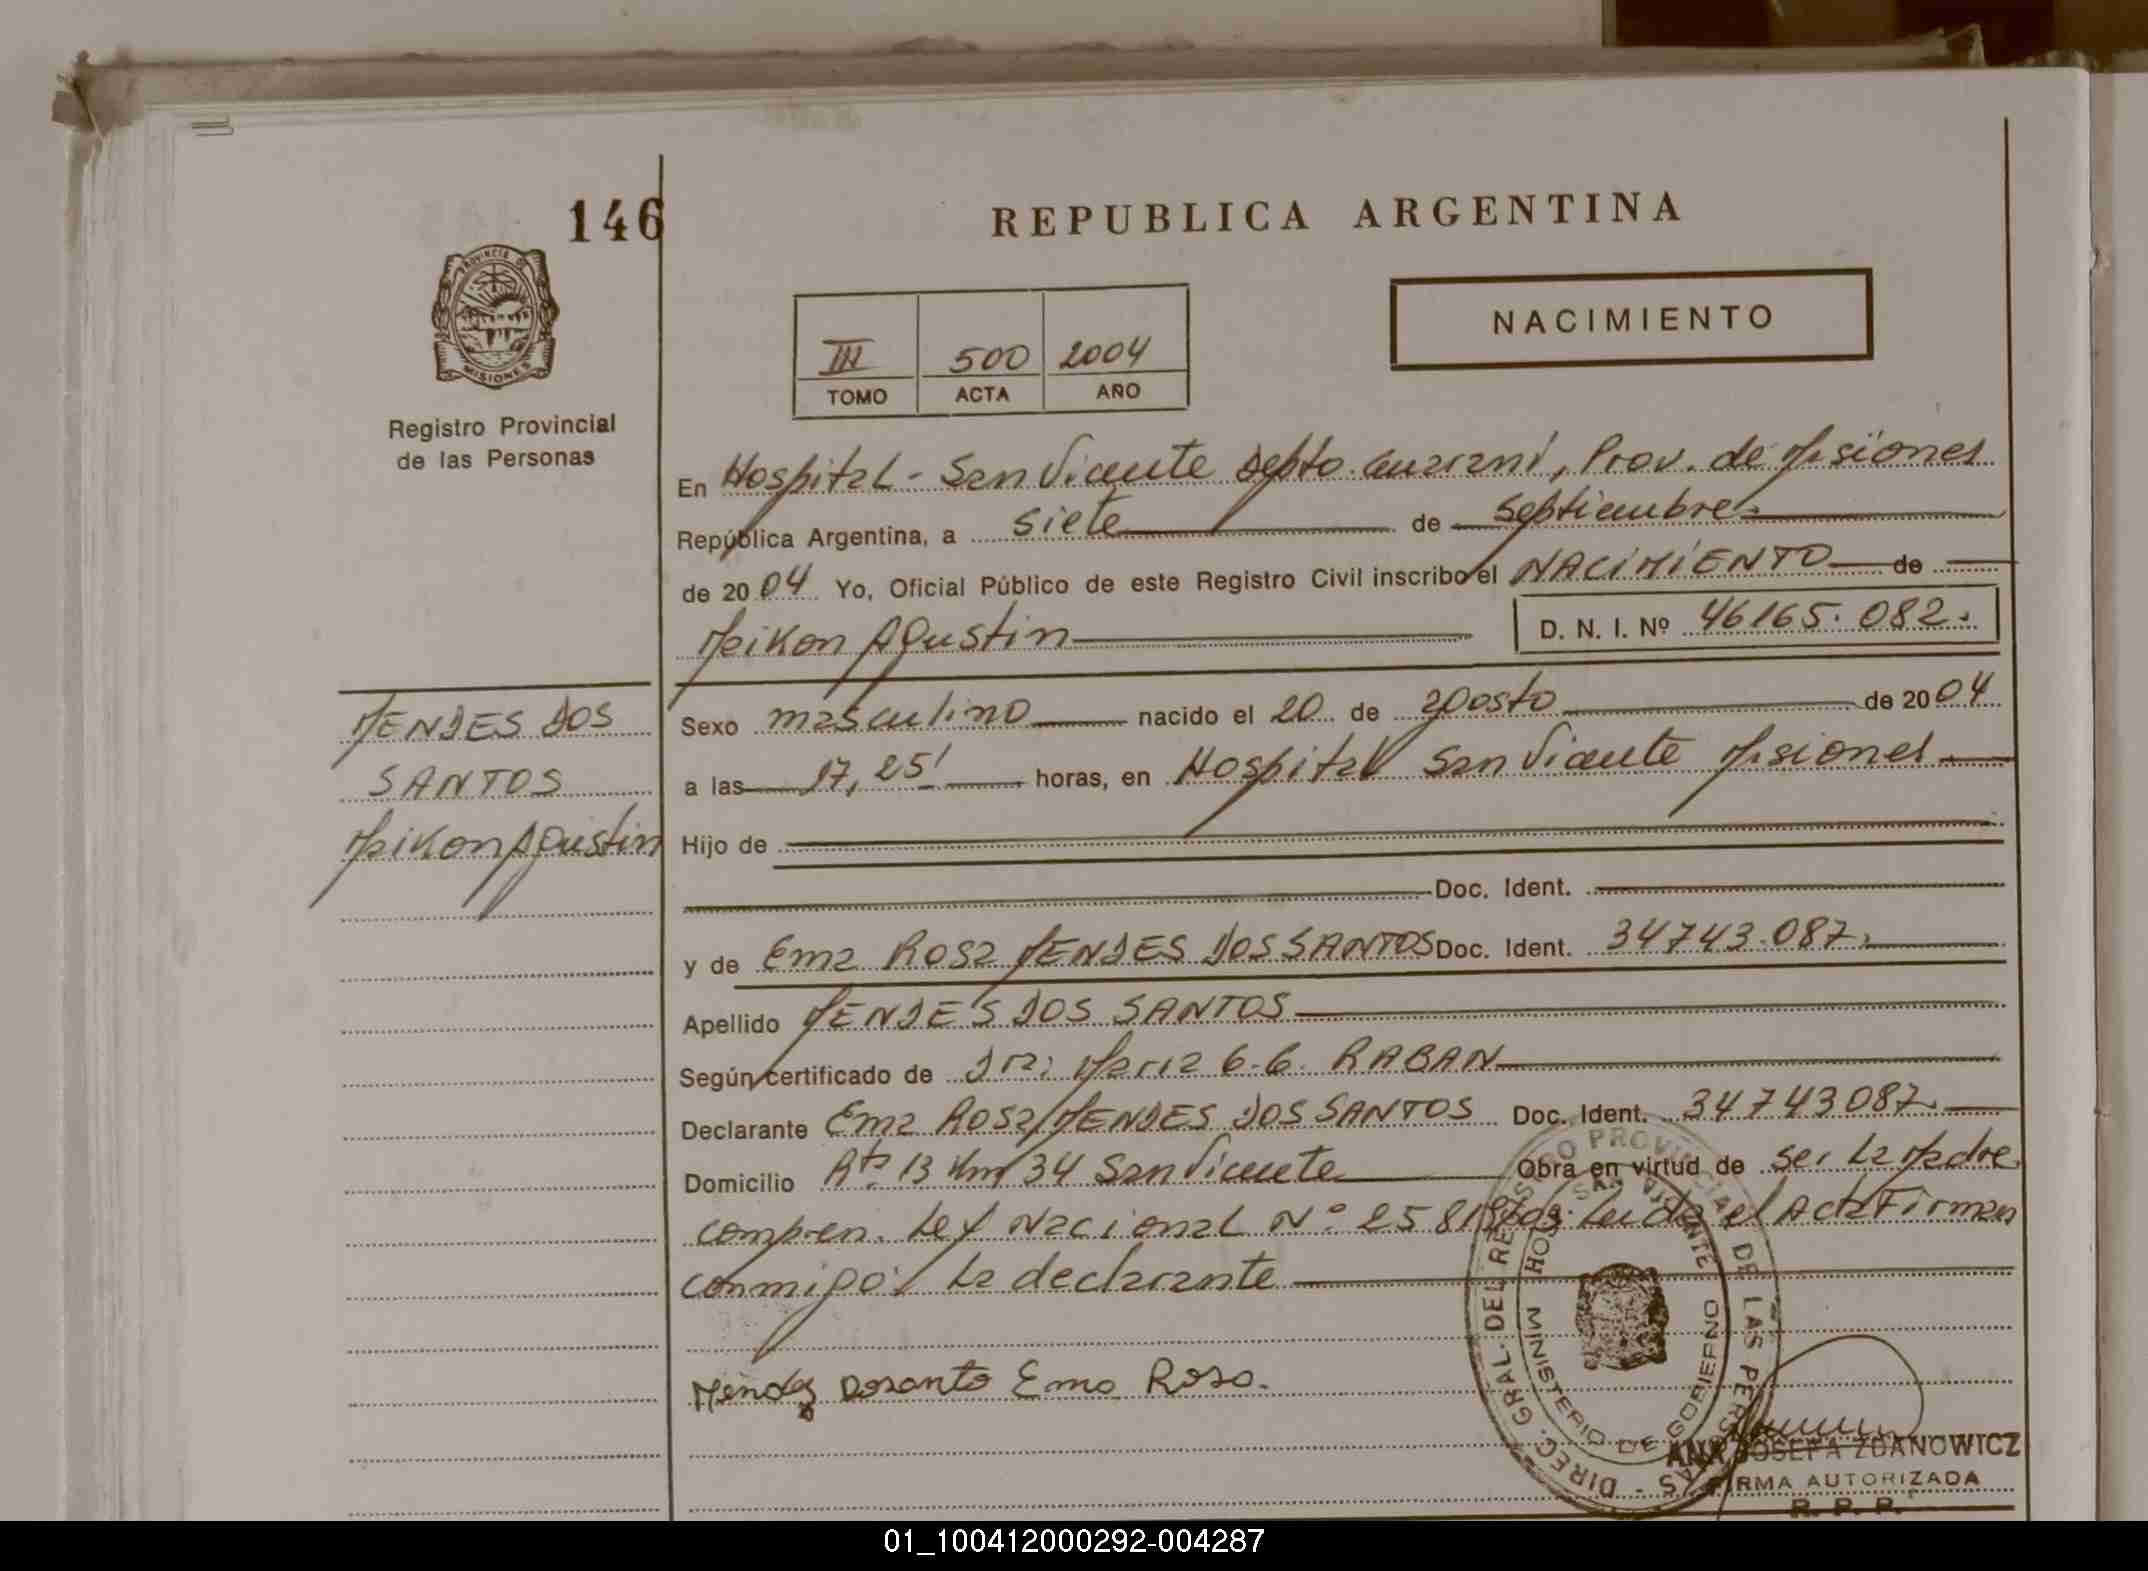 146
REPUBLICA ARGENTINA
NACIMIENTO
III 500 2004
TOMO ACTA AÑO
PROVINCIA DE
MISIONES
Registro Provincial
de las Personas
En Hospital - San Vicente Depto. Guaraní, Prov. de Misiones
República Argentina, a siete de septiembre
de 2004 Yo, Oficial Público de este Registro Civil inscribo el NACIMIENTO de
Maikon Agustin D. N. I. Nº 46165.082.
MENDES DOS
SANTOS
Maikon Agustin
Sexo masculino nacido el 20 de agosto de 2004
a las 17,25' horas, en Hospital San Vicente Misiones
Hijo de
Doc. Ident.
y de Ema Rosa MENDES DOS SANTOS Doc. Ident. 34743.087.
Apellido MENDES DOS SANTOS
Según certificado de Dra; Maria G. G. RABAN
Declarante Ema Rosa MENDES DOS SANTOS Doc. Ident. 34743087.
Domicilio Rta. 13 Km 34 San Vicente Obra en virtud de ser la Madre
compren. Ley Nacional Nº 25819/03. Leida el Acta Firman
conmigo: la declarante
Mendez Dosanto Ema Rosa.
DIREC. GRAL. DEL REGISTRO PROVINCIAL DE LAS PERSONAS -
SAN VICENTE
MINISTERIO DE GOBIERNO
ANA JOSEFA ZDANOWICZ
FIRMA AUTORIZADA
R. P. P.
01_100412000292-004287